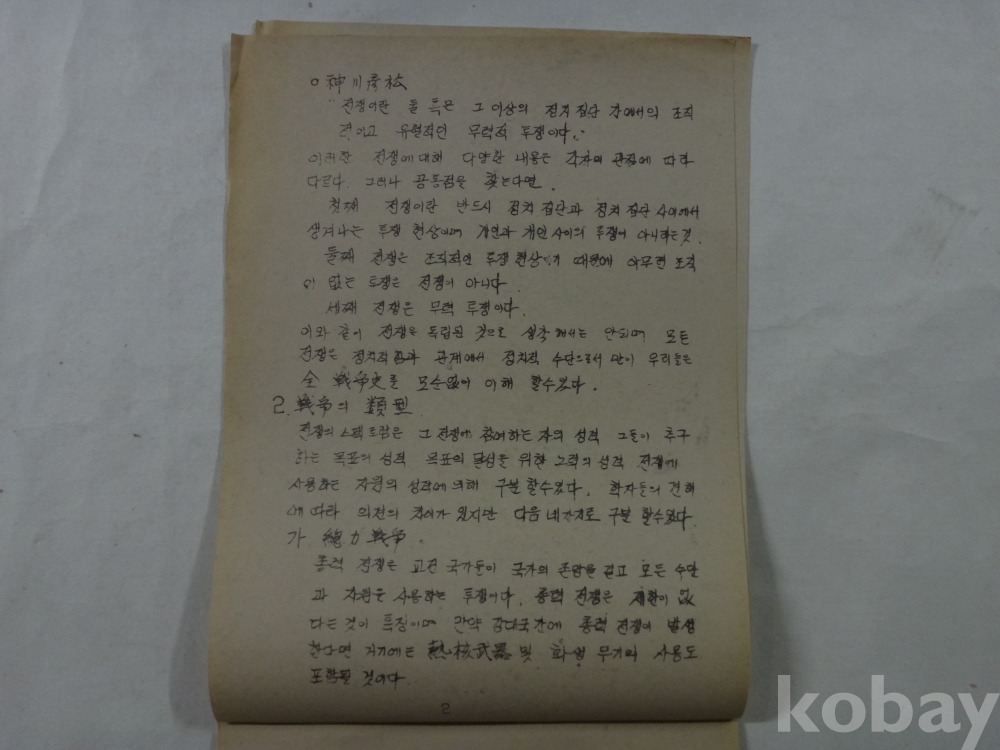 ○ 神川彦松
"전쟁이란 둘 혹은 그 이상의 정치 집단 간에서의 조직
적이고 유혈적인 무력적 투쟁이다."
이러한 전쟁에 대해 다양한 내용은 각자의 관점에 따라
다르다. 그러나 공통점을 찾는다면.
첫째 전쟁이란 반드시 정치 집단과 정치 집단 사이에서
생겨나는 투쟁 현상이며 개인과 개인 사이의 투쟁이 아니라는것.
둘째 전쟁은 조직적인 투쟁 현상이기 때문에 아무런 조직
이 없는 투쟁은 전쟁이 아니다.
세째 전쟁은 무력 투쟁이다.
이와 같이 전쟁은 독립된 것으로 생각해서는 안되며 모든
전쟁은 정치적 관계에서 정치적 수단으로서 만이 우리들은
全 戦争史를 모순없이 이해 할수있다.
2. 戦争의 類型
전쟁의 스팩트럼은 그 전쟁에 참여하는 자의 성격 그들이 추구
하는 목표의 성격 목표의 달성을 위한 노력의 성격 전쟁에
사용하는 자원의 성격에 의해 구분 할수있다. 학자들의 견해
에 따라 의견의 차이가 있지만 다음 네가지로 구분 할수있다
가 總力戦争.
총력 전쟁은 교전 국가들이 국가의 존망을 걸고 모든 수단
과 자원을 사용하는 투쟁이다. 총력 전쟁은 제한이 없
다는것이 특징이며 만약 강대국간에 총력 전쟁이 발생
한다면 거기에는 熱核武器 및 화생 무기의 사용도
포함될 것이다.
2
kobay